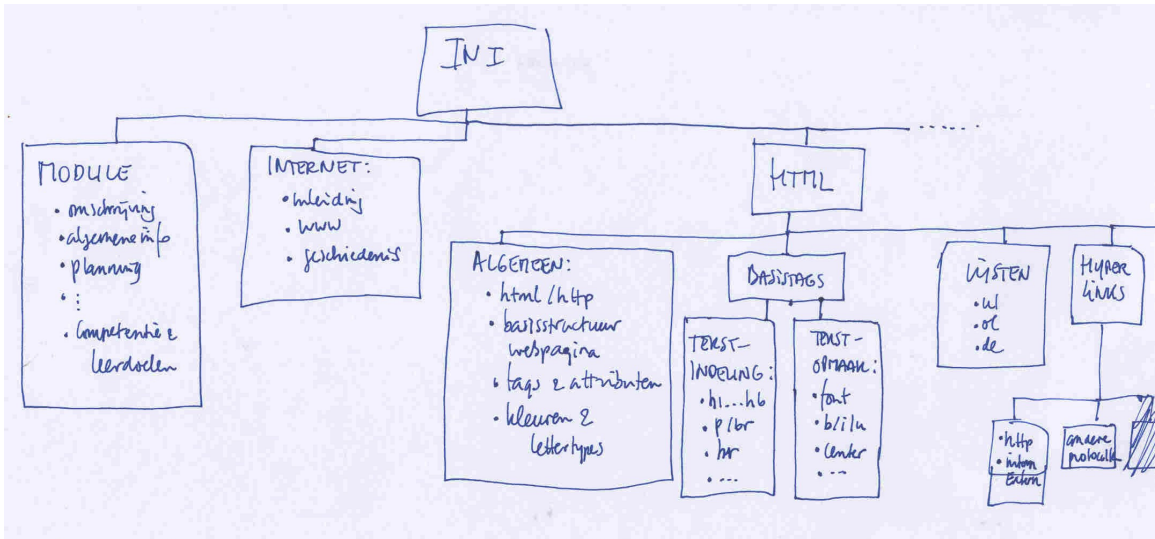 INI
MODULE
• omschrijving
• algemene info
• planning
• :
• Competentie &
leerdoelen
INTERNET:
• inleiding
• www
• geschiedenis
HTML
ALGEMEEN:
• html/http
• basisstructuur
webpagina
• tags & attributen
• kleuren &
lettertypes
BASISTAGS
TEKST-
INDELING:
• h1...h6
• p/br
• hr
• ...
TEKST-
OPMAAK:
• font
• b/i/u
• center
• ...
LIJSTEN
• ul
• ol
• de
HYPER
LINKS
• http
• intern
extern
andere